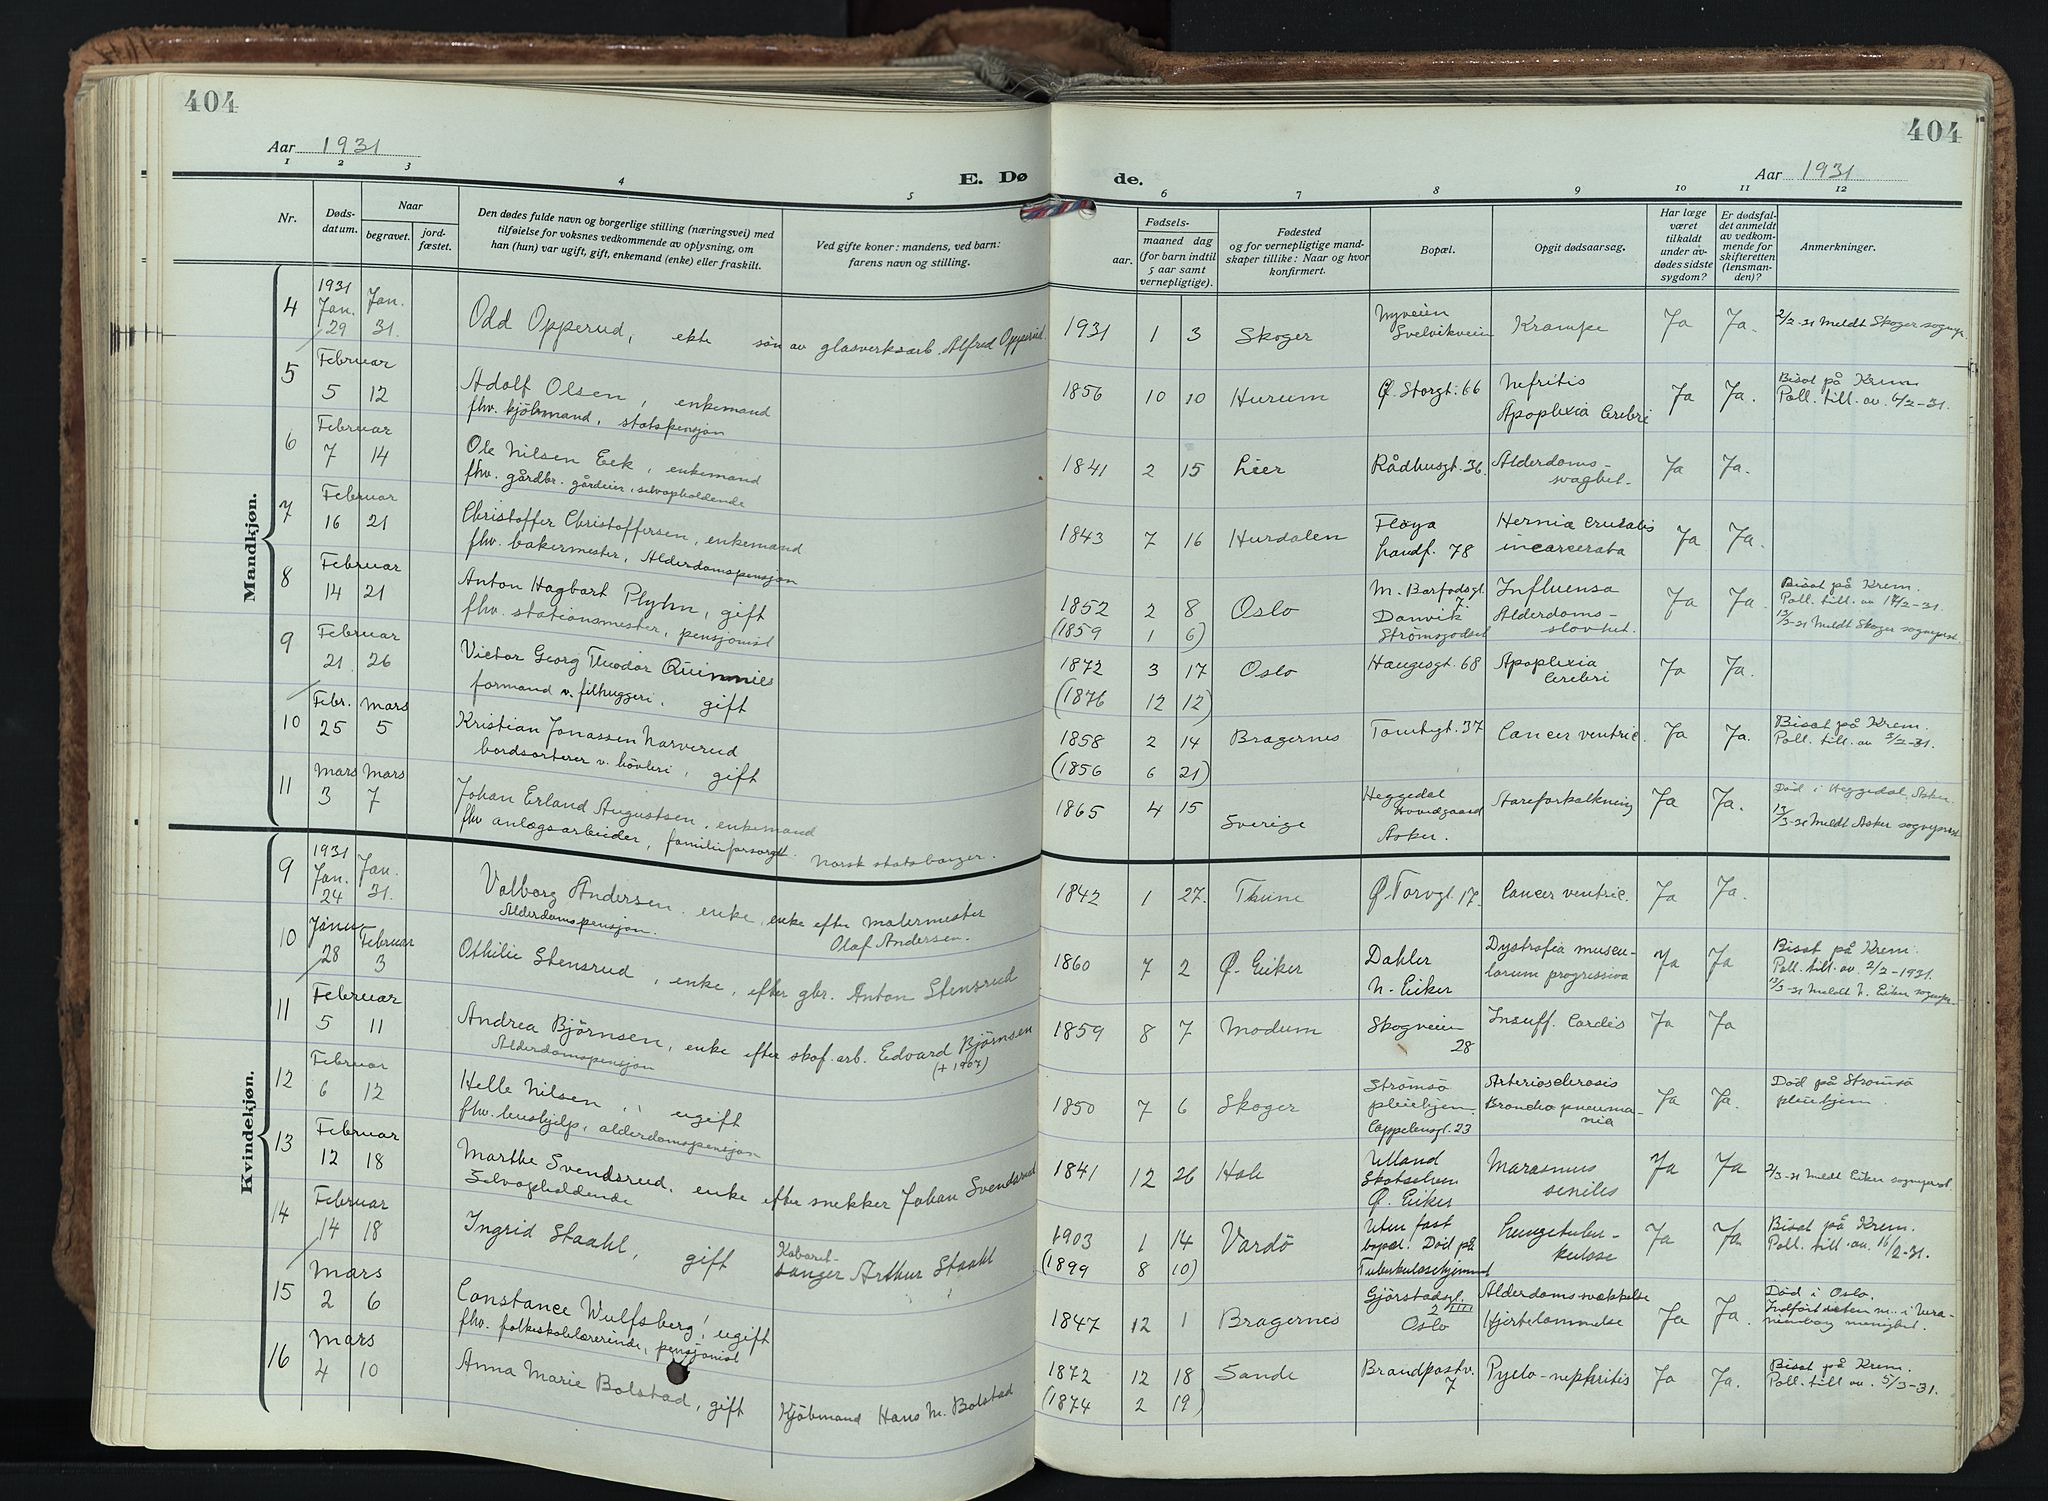 404
404
Aar 1931
E. Døde.
Aar 1931
1 2 3 4 5 6 7 8 9 10 11 12
Nr.
Døds-
datum.
Naar
begravet.
jord-
fæstet.
Den dødes fulde navn og borgerlige stilling (næringsvei) med
tilføielse for voksnes vedkommende av oplysning, om
han (hun) var ugift, gift, enkemand (enke) eller fraskilt.
Ved gifte koner: mandens, ved barn:
farens navn og stilling.
Fødsels-
aar.
maaned dag
(for barn indtil
5 aar samt
vernepligtige).
Fødested
og for vernepligtige mand-
skaper tillike: Naar og hvor
konfirmert.
Bopæl.
Opgit dødsaarsag.
Har læge
været
tilkaldt
under av-
dødes sidste
sygdom?
Er dødsfal-
det anmeldt
av vedkom-
mende for
skifteretten
(lensman-
den)?
Anmerkninger.
Mandkjøn.
4 1931 Jan. 29 Jan. 31. Odd Opperud, ekte søn av glasverksarb. Alfred Opperud. 1931 1 3 Skoger Nyveien Svelvikveien Krampe Ja Ja. 2/2-31 Meldt Skoger sognepr.
5 Februar 5 12 Adolf Olsen, enkemand
fhv. kjöbmand, statspensjon 1856 10 10 Hurum Ø. Storgt. 66 Nefritis
Apoplexia Cerebri Ja Ja. Bisat på Krem.
Poll. till. av. 6/2-31.
6 Februar 7 14 Ole Nilsen Eek, enkemand
fhv. gårdbr. gårdeier, selvopholdende 1841 2 15 Lier Rådhusgt. 36 Alderdoms-
svaghet. Ja Ja.
7 Februar 16 21 Christoffer Christoffersen, enkemand
fhv. bakermester, Alderdomspensjon 1843 7 16 Hurdalen Fløya
Landf. 78 Hernia Cruralis
incarcerata Ja Ja.
8 Februar 14 21 Anton Hagbart Plyhn, gift
fhv. stationsmester, pensjonist 1852 2 8 Oslo M. Barfodsgt. 7.
Danvik
Strømsgodset Influensa
Alderdoms-
slovhet. Ja Ja. Bisat på Krem.
Poll. till. av 17/2-31.
13/3-31 Meldt Skoger sognepr.
(1859 1 6)
9 Februar 21 26 Victor Georg Theodor Quinnies
formand v. filhuggeri, gift 1872 3 17 Oslo Haugesgt. 68 Apoplexia
Cerebri Ja Ja.
(1876 12 12)
10 Febr. 25 Mars 5 Kristian Jonassen Narverud
bordsorterer v. hövleri, gift 1858 2 14 Bragernes Tomtegt. 37 Cancer ventric. Ja Ja. Bisat på Krem.
Poll. till. av 5/2-31.
(1856 6 21)
11 Mars 3 Mars 7 Johan Erland Augustsen, enkemand
fhv. anlægsarbeider, familieforsørget. Norsk statsborger. 1865 4 15 Sverige Heggedal
Hovedgaard
Asker. Stareforkalkning Ja Ja. Död i Heggedal, Asker
13/3-31 Meldt Asker sognepr.
Kvindekjøn.
9 1931 Jan. 24 Jan. 31. Valborg Andersen. enke, enke efter malermester
Alderdomspensjon. Olaf Andersen. 1842 1 27. Thune Ø. Torvgt. 17 Cancer ventric. Ja Ja.
10 Januar 28 Februar 3 Othilie Stensrud, enke, efter gbr. Anton Stensrud 1860 7 2 Ø. Eiker Dahler
N. Eiker Dystrofia muscu-
lorum progressiva Ja Ja Bisat på Krem.
Poll. till. av. 2/2-1931.
13/3-31 Meldt N. Eiker sognepr.
11 Februar 5 11 Andrea Björnsen, enke efter skof. arb. Edvard Björnsen
Alderdomspensjon (+ 1907) 1859 8 7 Modum Skogveien
28 Insuff. Cordis Ja Ja
12 Februar 6 12 Helle Nilsen, ugift
fhv. hushjelp, alderdomspensjon 1850 7 6 Skoger Strömsö
pleiehjem
Cappelensgt. 23 Arteriosclerosis
Broncho pneumo-
nia Ja Ja. Död på Strömsö
pleiehjem.
13 Februar 12 18 Marthe Svendsrud. enke efter snekker Johan Svendsrud
Selvopholdende 1841 12 26 Hole Ulland
Skotselven
Ø. Eiker Marasmus
seniles Ja Ja 2/3-31 Meldt Eiker sognepr.
14 Februar 14 18 Ingrid Staahl, gift Kabaret-
sanger Arthur Staahl 1903 1 14 Vardö Uten fast
bopæl. Död på
Tuberkulosehjemmet Lungetuber-
kulose Ja Ja. Bisat på Krem.
Poll. till. av. 16/2-31.
(1899 8 10)
15 Mars 2 6 Constance Wulfsberg, ugift
fhv. folkeskolelærerinde, pensjonist 1847 12 1 Bragernes Gjörstadsgt.
2 III
Oslo Alderdomssvækkelse
Hjertelammelse Ja Ja. Död i Oslo.
Indfört i Ura-
nienborg menighet.
16 Mars 4 10 Anna Marie Bolstad, gift Kjöbmand Hans M. Bolstad 1872 12 18 Sande Brandpostv.
7 Pyelo-nephritis Ja Ja. Bisat på Krem.
Poll. till av. 5/3-31.
(1874 2 19)